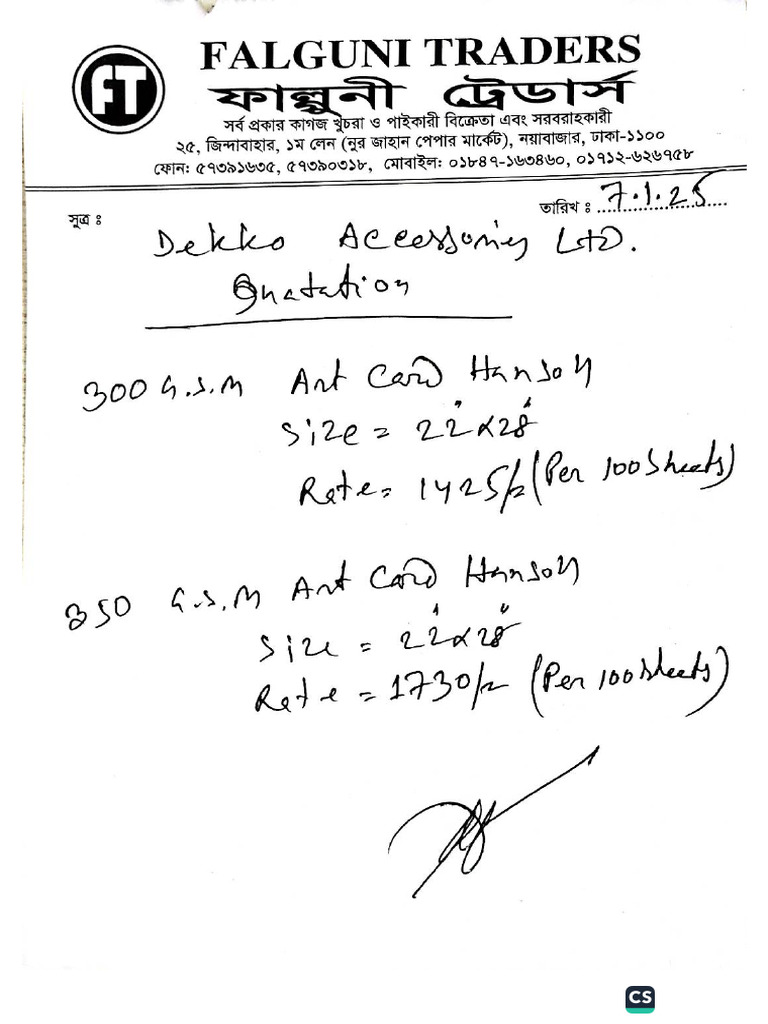 FT
FALGUNI TRADERS
ফাল্গুনী ট্রেডার্স
সর্ব প্রকার কাগজ খুচরা ও পাইকারী বিক্রেতা এবং সরবরাহকারী
২৫, জিন্দাবাহার, ১ম লেন (নুর জাহান পেপার মার্কেট), নয়াবাজার, ঢাকা-১১০০
ফোন: ৫৭৩৯১৬৩৫, ৫৭৩৯০৩১৮, মোবাইল: ০১৮৪৭-১৬৩৪৬০, ০১৭১২-৬২৬৭৫৮
সূত্র ঃ
তারিখ ঃ 7.1.25
Dekko Accessories Ltd.
Quatation
300 G.S.M Art Card Hansol
Size = 22"x28"
Rate = 1425/= (Per 100 Sheets)
350 G.S.M Art Card Hansol
Size = 22"x28"
Rate = 1730/= (Per 100 Sheets)
CS